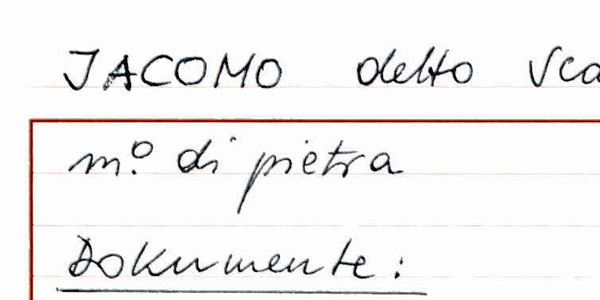 JACOMO detto Sca
m.º di pietra
Dokumente: